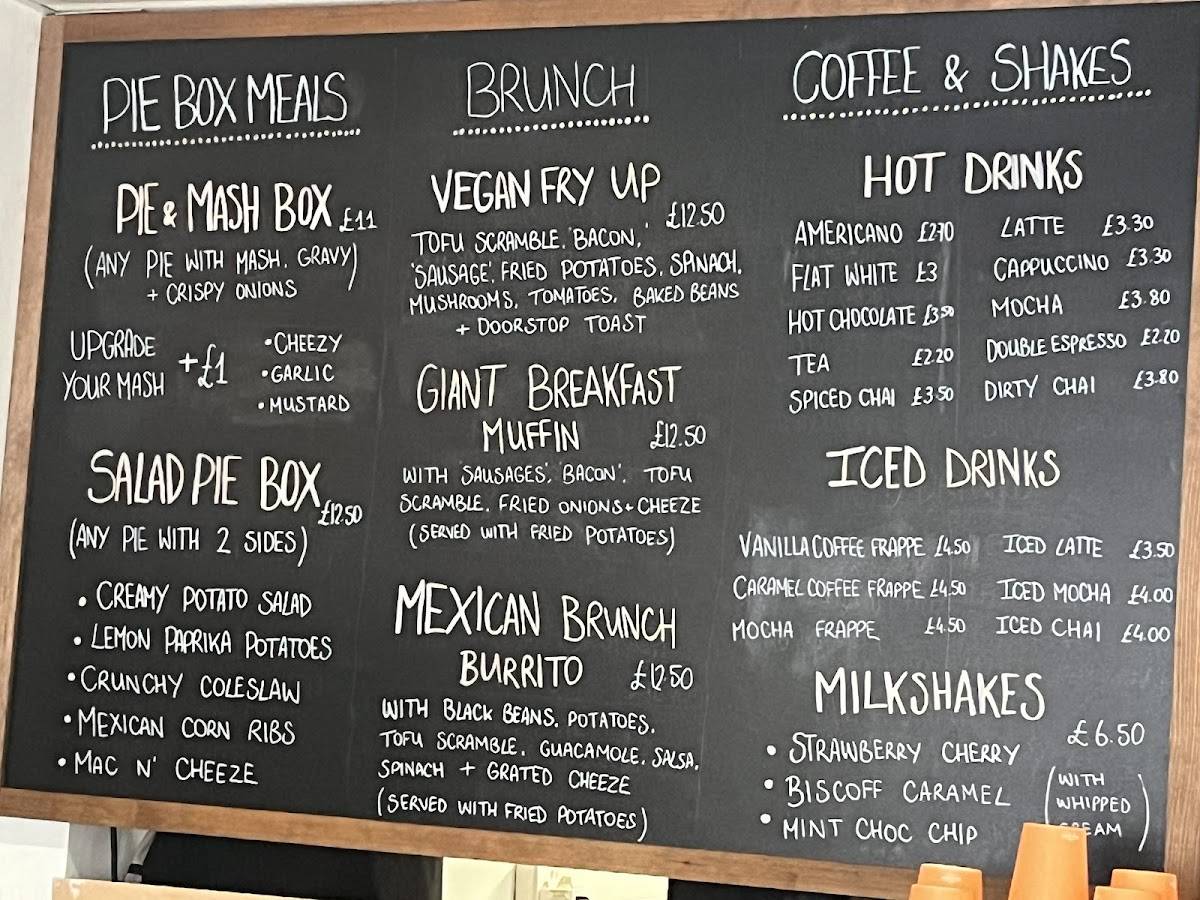 PIE BOX MEALS
PIE & MASH BOX £11
(ANY PIE WITH MASH, GRAVY)
+ CRISPY ONIONS
UPGRADE
YOUR MASH
+£1
• CHEEZY
• GARLIC
• MUSTARD
SALAD PIE BOX £12.50
(ANY PIE WITH 2 SIDES)
• CREAMY POTATO SALAD
• LEMON PAPRIKA POTATOES
• CRUNCHY COLESLAW
• MEXICAN CORN RIBS
• MAC N' CHEEZE
BRUNCH
VEGAN FRY UP £12.50
TOFU SCRAMBLE, 'BACON,'
'SAUSAGE', FRIED POTATOES, SPINACH,
MUSHROOMS, TOMATOES, BAKED BEANS
+ DOORSTOP TOAST
GIANT BREAKFAST
MUFFIN £12.50
WITH 'SAUSAGES', 'BACON', TOFU
SCRAMBLE, FRIED ONIONS + CHEEZE
(SERVED WITH FRIED POTATOES)
MEXICAN BRUNCH
BURRITO £12.50
WITH BLACK BEANS, POTATOES,
TOFU SCRAMBLE, GUACAMOLE, SALSA,
SPINACH + GRATED CHEEZE
(SERVED WITH FRIED POTATOES)
COFFEE & SHAKES
HOT DRINKS
AMERICANO £2.70 LATTE £3.30
FLAT WHITE £3 CAPPUCCINO £3.30
HOT CHOCOLATE £3.50 MOCHA £3.80
TEA £2.20 DOUBLE ESPRESSO £2.20
SPICED CHAI £3.50 DIRTY CHAI £3.80
ICED DRINKS
VANILLA COFFEE FRAPPE £4.50 ICED LATTE £3.50
CARAMEL COFFEE FRAPPE £4.50 ICED MOCHA £4.00
MOCHA FRAPPE £4.50 ICED CHAI £4.00
MILKSHAKES
£6.50
• STRAWBERRY CHERRY
• BISCOFF CARAMEL
• MINT CHOC CHIP
(WITH
WHIPPED
CREAM)